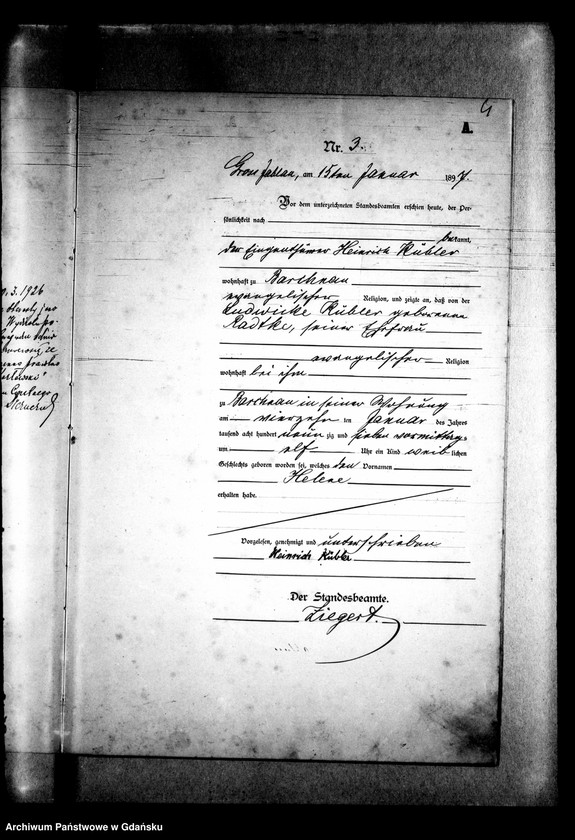 4
A.
Nr. 3.
Gross Jablau, am 15ten Januar 1897.
Vor dem unterzeichneten Standesbeamten erschien heute, der Per-
sönlichkeit nach
bekannt,
der Eigenthümer Heinrich Kübler
wohnhaft zu Barthean
evangelischer Religion, und zeigte an, daß von der
Ludwicke Kübler geborenen
Radtke, seiner Ehefrau
evangelischer Religion
wohnhaft bei ihm
zu Barthean in seiner Wohnung
am vierzehn ten Januar des Jahres
tausend acht hundert neun zig und sieben vormittags
um elf Uhr ein Kind weiblichen
Geschlechts geboren worden sei, welches den Vornamen
Helene
erhalten habe.
Vorgelesen, genehmigt und unterschrieben
Heinrich Kübler
Der Standesbeamte.
Ziegert.
3.1926
Archiwum Państwowe w Gdańsku